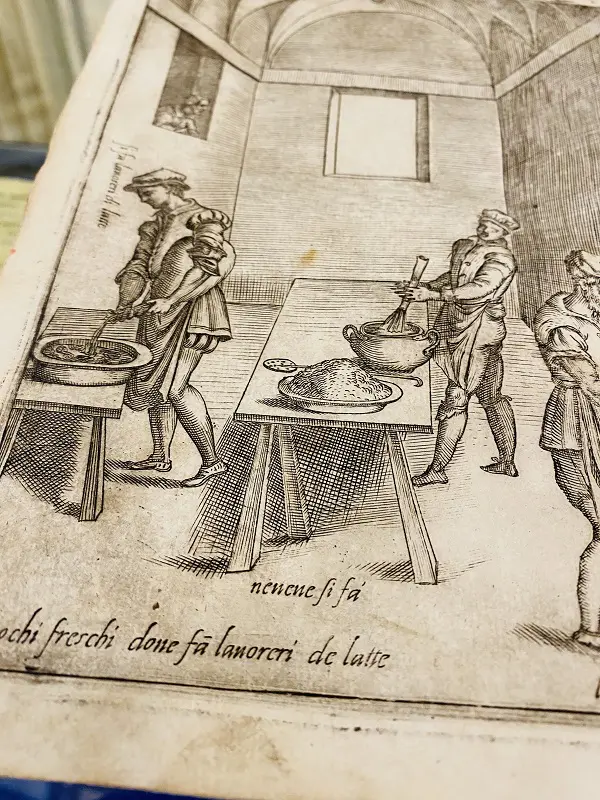 si fa lauoreri di latte
neueue si fá
ochi freschi doue fã lauoreri de latte